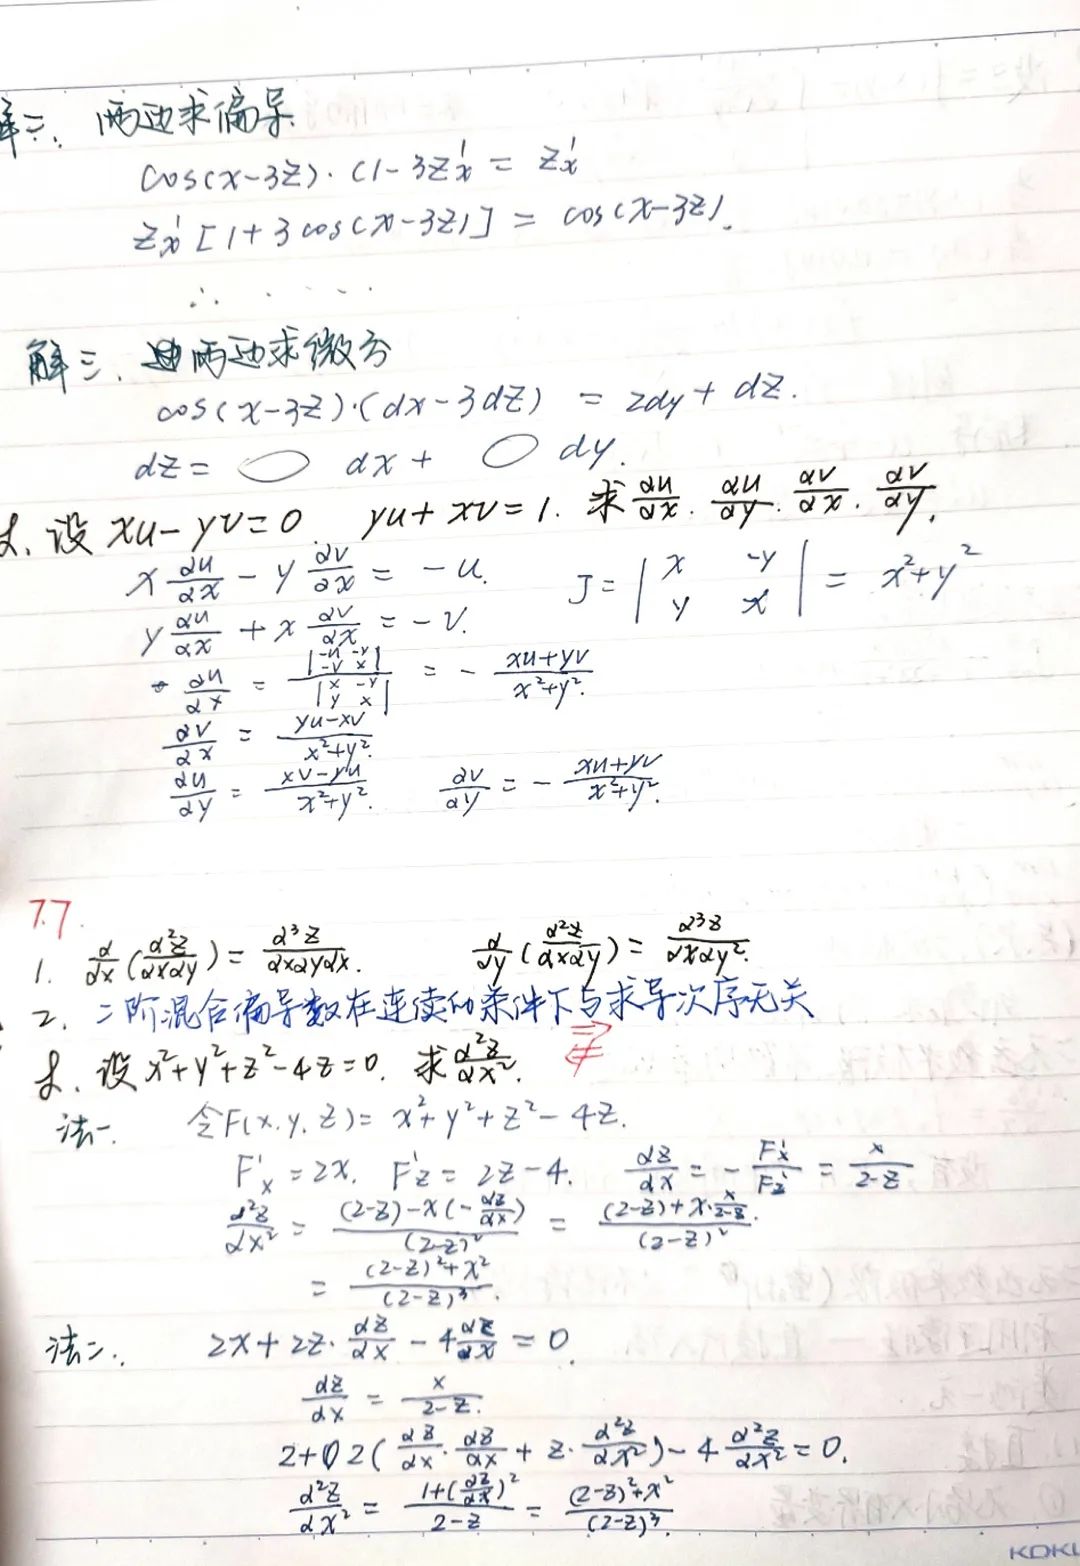 解二. 两边求偏导
cos(x-3z)·(1-3z'x = z'x
z'x [1+3cos(x-3z)] = cos(x-3z).
∴ ·····
解三. 两边求微分
cos(x-3z)·(dx-3dz) = 2dy + dz.
dz = ○ dx + ○ dy.
例. 设 xu-yv=0 yu+xv=1. 求 ∂u/∂x. ∂u/∂y. ∂v/∂x. ∂v/∂y.
x ∂u/∂x - y ∂v/∂x = -u. J = | x -y ; y x | = x²+y²
y ∂u/∂x + x ∂v/∂x = -v.
∂u/∂x = | -u -y ; -v x | / | x -y ; y x | = - (xu+yv)/(x²+y²).
∂v/∂x = (yu-xv)/(x²+y²).
∂u/∂y = (xv-yu)/(x²+y²). ∂v/∂y = - (xu+yv)/(x²+y²).
7.7
1. ∂/∂x (∂²z/∂x∂y) = ∂³z/∂x∂y∂x. ∂/∂y (∂²z/∂x∂y) = ∂³z/∂x∂y².
2. 二阶混合偏导数在连续的条件下与求导次序无关
例. 设 x²+y²+z²-4z=0. 求 ∂²z/∂x².
法一. 令F(x.y.z) = x²+y²+z²-4z.
F'x = 2x. F'z = 2z-4. ∂z/∂x = - F'x/F'z = x/(2-z).
∂²z/∂x² = ((2-z)-x(-∂z/∂x))/(2-z)² = ((2-z)+x·x/(2-z))/(2-z)².
= ((2-z)²+x²)/(2-z)³.
法二. 2x+2z·∂z/∂x - 4∂z/∂x = 0.
∂z/∂x = x/(2-z).
2+2(∂z/∂x·∂z/∂x + z·∂²z/∂x²) - 4∂²z/∂x² = 0.
∂²z/∂x² = (1+(∂z/∂x)²)/(2-z) = ((2-z)²+x²)/(2-z)³.